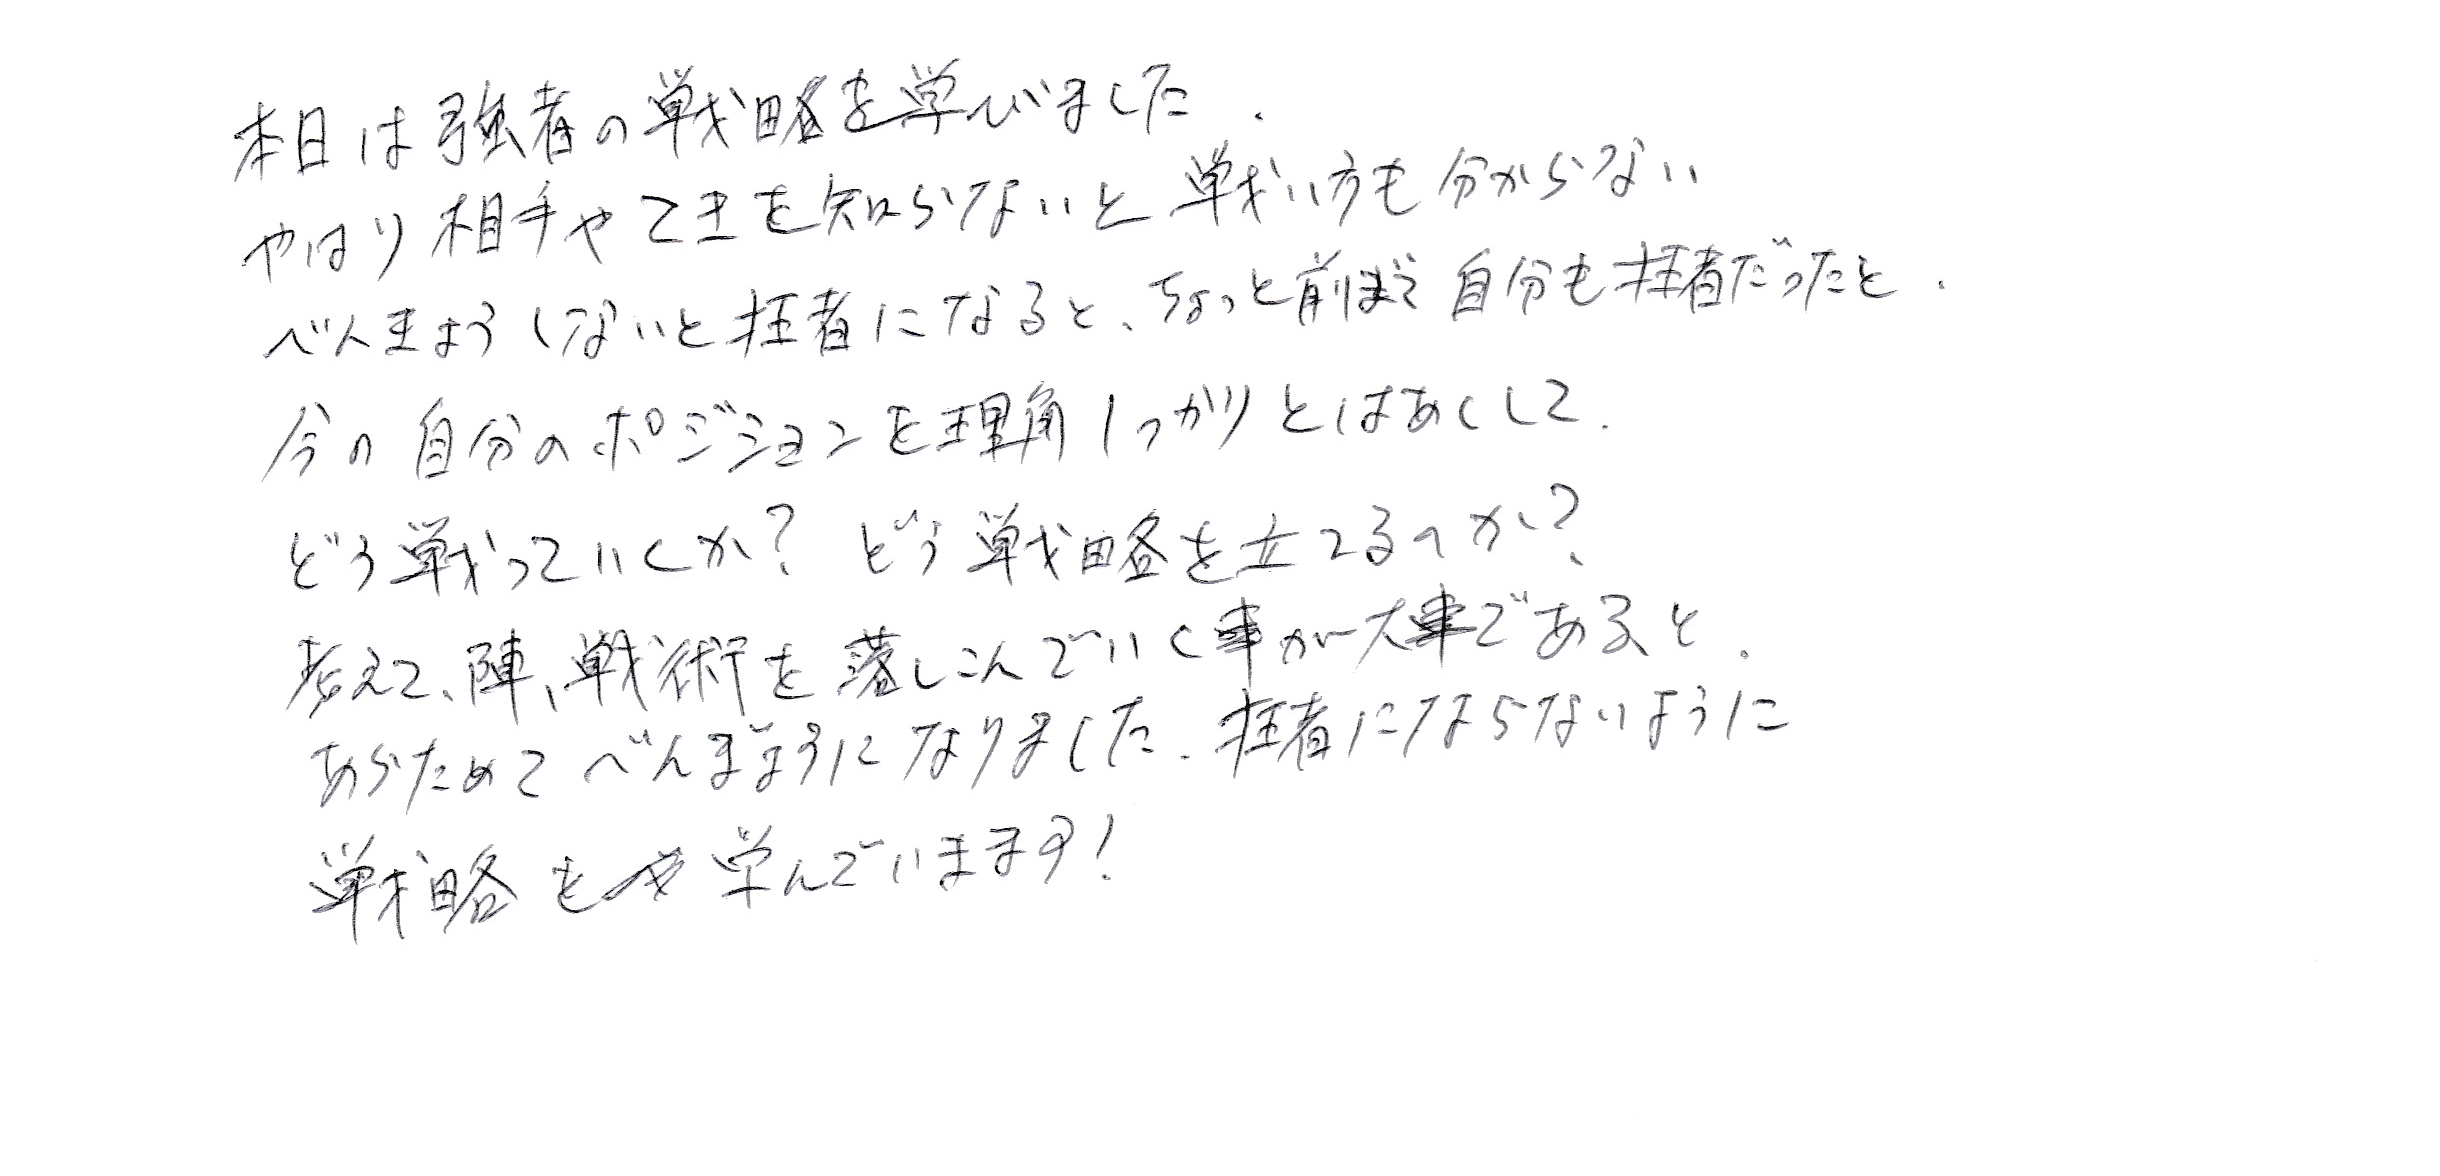 本日は強者の戦略を学びました.
やはり相手やてきを知らないと戦い方も分からない
べんきょうしないと拡者になると、ちょっと前まで自分も拡者だったと.
今の自分のポジションを理解しっかりとはあくして.
どう戦っていくか？ どう戦略を立てるのか？
考えて、陣、戦術を落しこんでいく事が大事であると.
あらためてべんきょうになりました. 者にならないように
戦略を学んでいます！